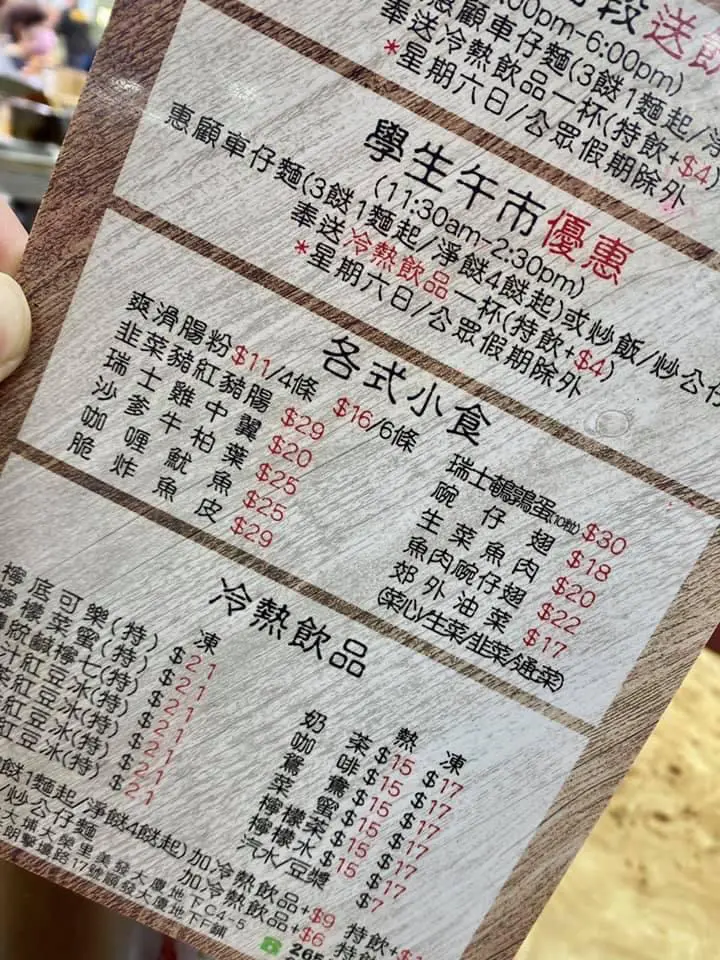 :00pm-6:00pm)
惠顧車仔麵(3餸1麵起/淨
奉送冷熱飲品一杯(特飲+$4)
*星期六日/公眾假期除外
學生午市優惠
(11:30am-2:30pm)
惠顧車仔麵(3餸1麵起/淨餸4餸起)或炒飯/炒公仔
奉送冷熱飲品一杯(特飲+$4)
*星期六日/公眾假期除外
各式小食
爽滑腸粉 $11/4條 $16/6條
韭菜豬紅豬腸 $29
瑞士雞中翼 $20
沙爹牛柏葉 $25
咖喱魷魚 $25
脆炸魚皮 $29
瑞士鵪鶉蛋(10粒) $30
碗仔翅 $18
生菜魚肉 $20
魚肉碗仔翅 $22
郊外油菜 $17
(菜心/生菜/韭菜/通菜)
冷熱飲品
凍
檸底可樂(特) $21
檸檬菜蜜(特) $21
統鹹檸七(特) $21
汁紅豆冰(特) $21
紅豆冰(特) $21
紅豆冰(特) $21
熱 凍
奶茶 $15 $17
咖啡 $15 $17
鴛鴦 $15 $17
菜蜜 $15 $17
檸檬茶 $15 $17
檸檬水 $15 $17
汽水/豆漿 $7
餸1麵起/淨餸4餸起) 加冷熱飲品+$9 特飲+$
/炒公仔麵 加冷熱飲品+$6 特飲
大埔大榮里美發大廈地下C4-5
路17號 發大廈地下F舖
265